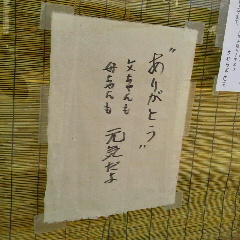 “ありがとう”
父ちゃんも
母ちゃんも
元気だよ